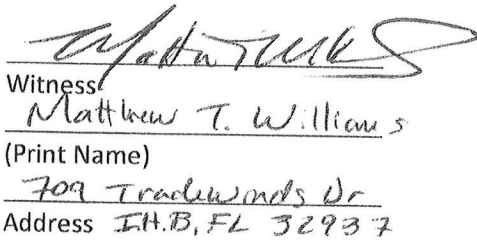 Witness
Matthew T. Williams
(Print Name)
709 Tradewinds Dr
Address I.H.B, FL 32937